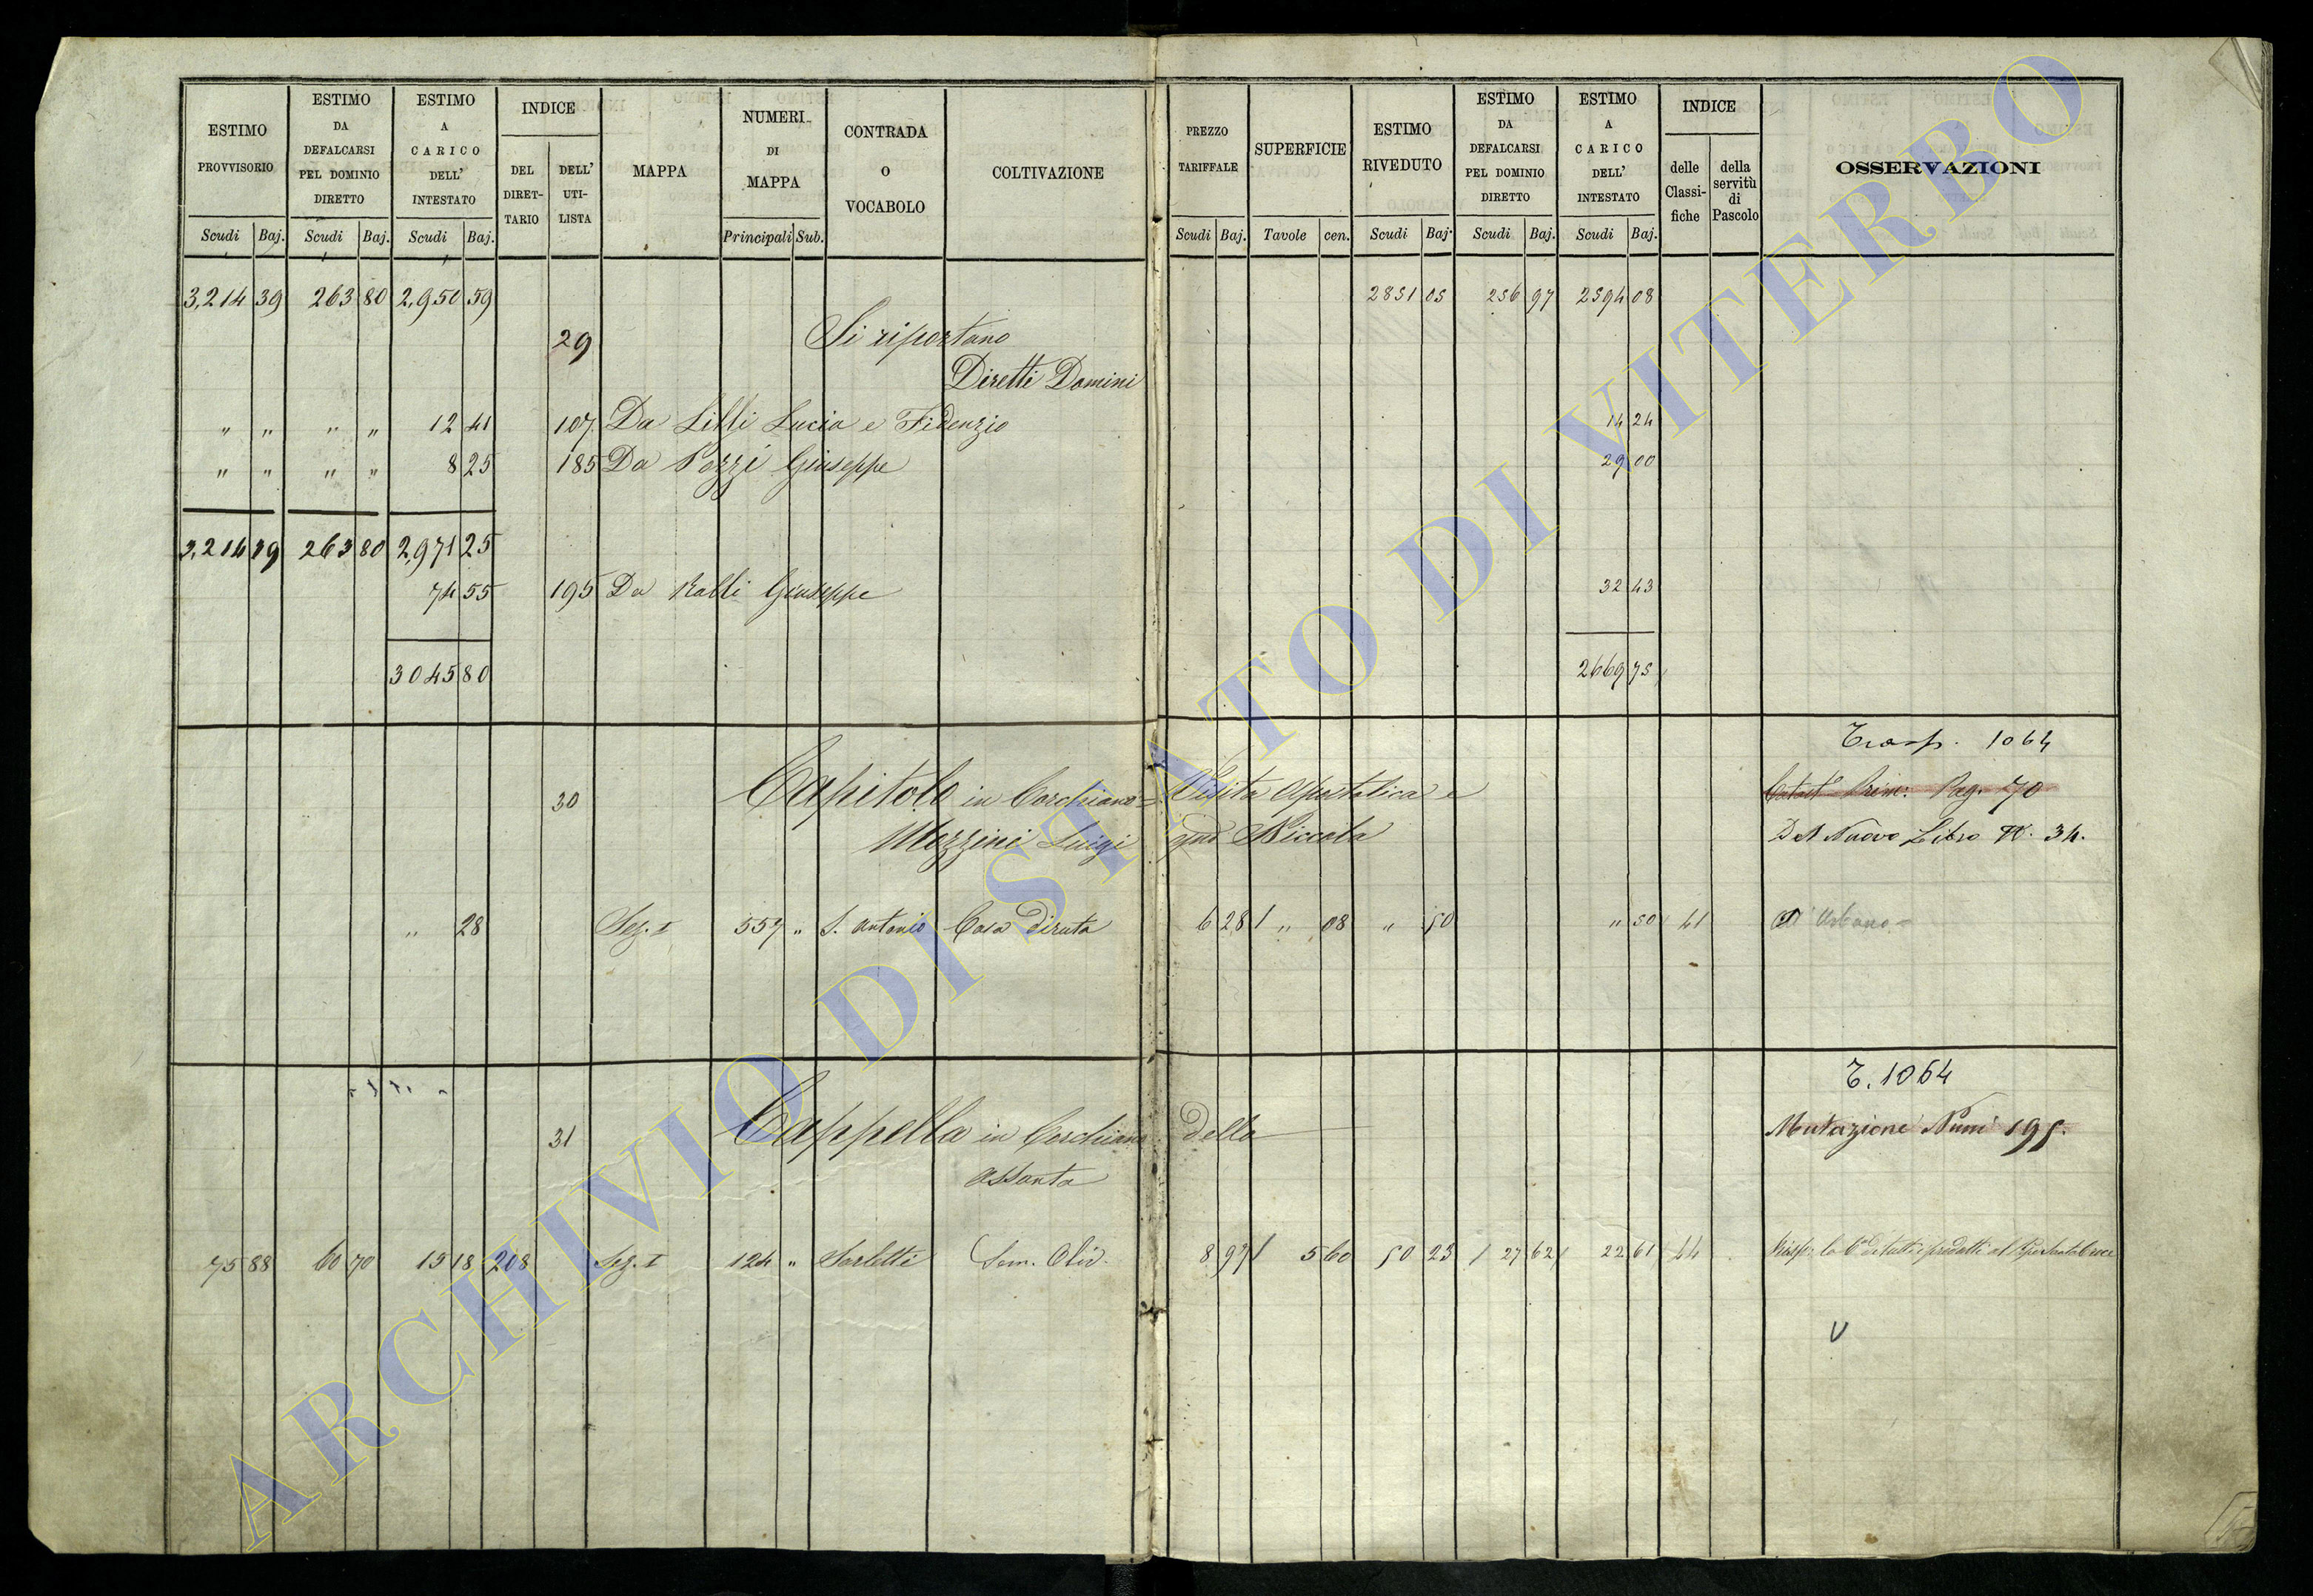 ESTIMO PROVVISORIO
ESTIMO DA DEFALCARSI PEL DOMINIO DIRETTO
ESTIMO A CARICO DELL' INTESTATO
INDICE
DEL DIRET-TARIO
DELL' UTI-LISTA
MAPPA
NUMERI DI MAPPA
CONTRADA O VOCABOLO
COLTIVAZIONE
PREZZO TARIFFALE
SUPERFICIE
ESTIMO RIVEDUTO
ESTIMO DA DEFALCARSI PEL DOMINIO DIRETTO
ESTIMO A CARICO DELL' INTESTATO
INDICE
delle Classi-fiche
della servitù di Pascolo
OSSERVAZIONI
Scudi Baj. Scudi Baj. Scudi Baj. Principali Sub. Scudi Baj. Tavole cen. Scudi Baj. Scudi Baj. Scudi Baj.
3,214 39 263 80 2,950 59 2851 05 256 97 2594 08
29 Si riportano
Diretti Domini
" " " " 12 41 107 Da Lilli Lucia e Fidenzio 14 24
" " " " 8 25 185 Da Pozzi Giuseppe 29 00
3,214 39 263 80 2,971 25
74 55 195 Da Ralli Giuseppe 32 43
3045 80 2669 75
Trasp. 1064
30 Capitolo in Corchiano = Visita Apostolica e
Pag. 70
Mozzini Luigi qm Niccola
Del Nuovo Libro 34.
" 28 Sez. I 557 " S. Antonio Casa diruta 6 28 " 08 " 50 " 50 41
T. 1064
31 Cappella in Corchiano della
Mutazione Num 195.
Assunta
75 88 60 70 15 18 208 Sez. I 124 " Sorletti Sem. Oliv. 8 97 5 60 50 23 27 62 22 61 44
V
ARCHIVIO DI STATO DI VITERBO